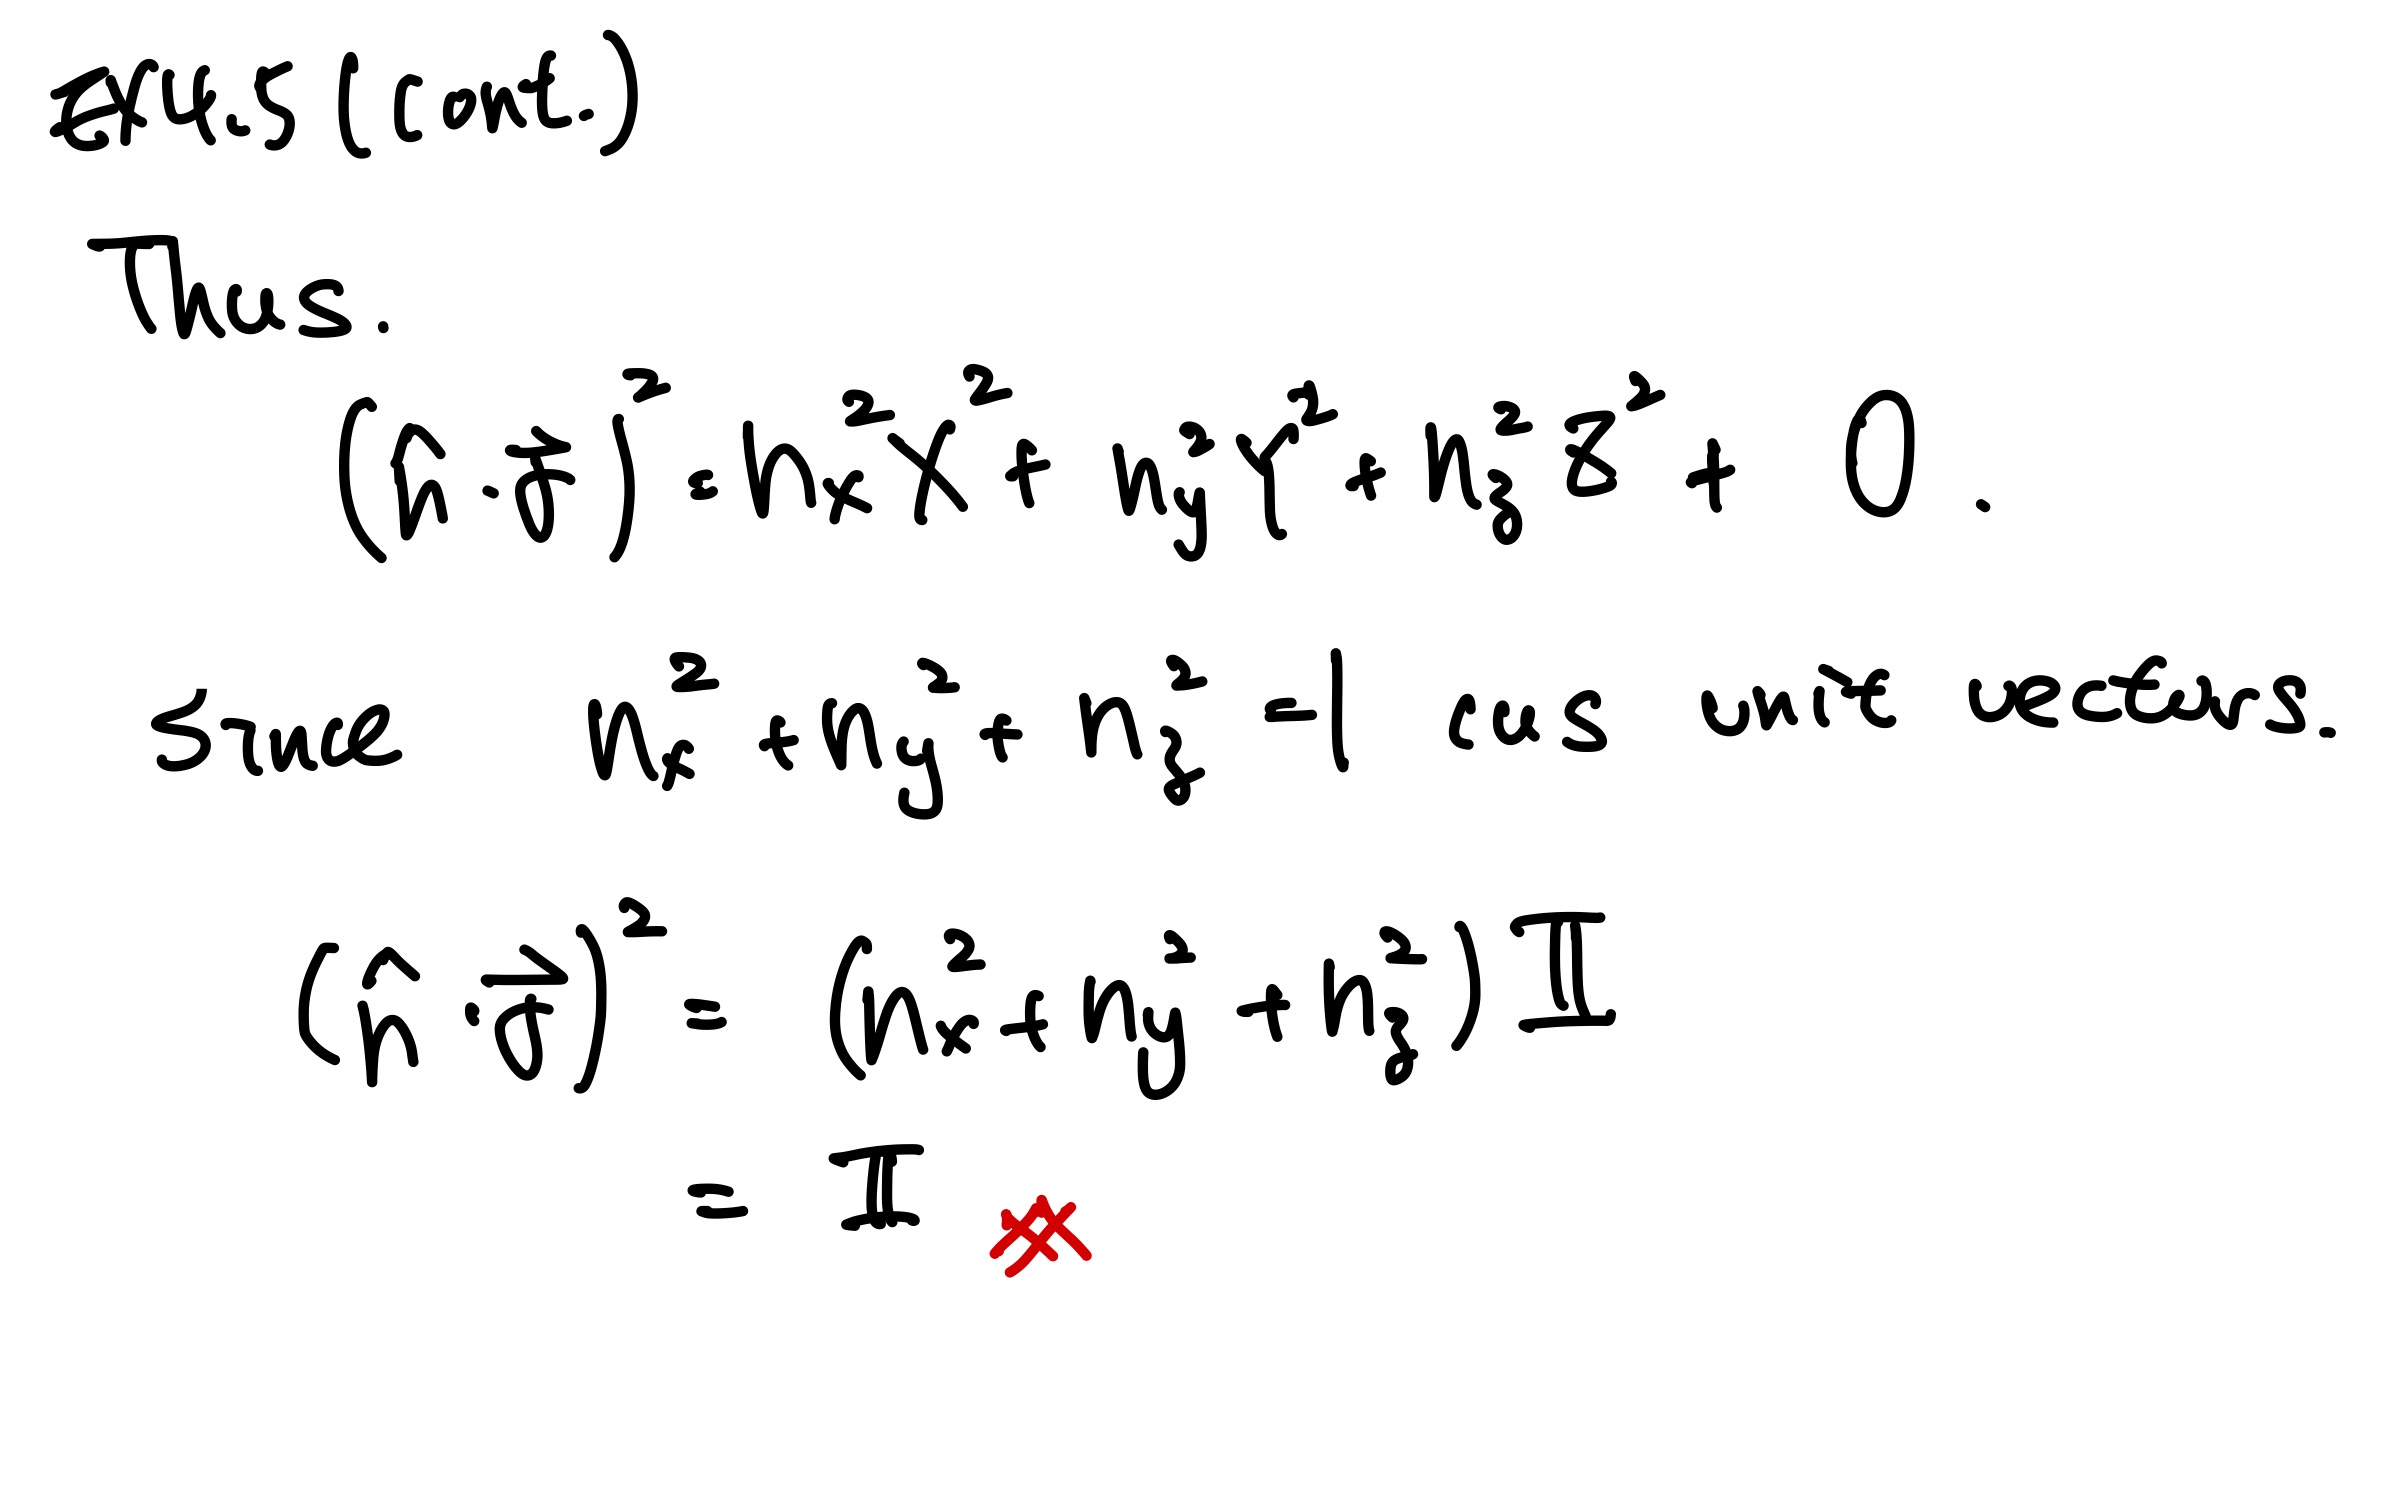 Ex4.5 (cont.)
Thus.
(n̂·σ⃗)² = nₓ²X² + n_y²Y² + n_z²Z² + 0.
Since nₓ² + n_y² + n_z² = 1 as unit vectors.
(n̂·σ⃗)² = (nₓ² + n_y² + n_z²) I
= I